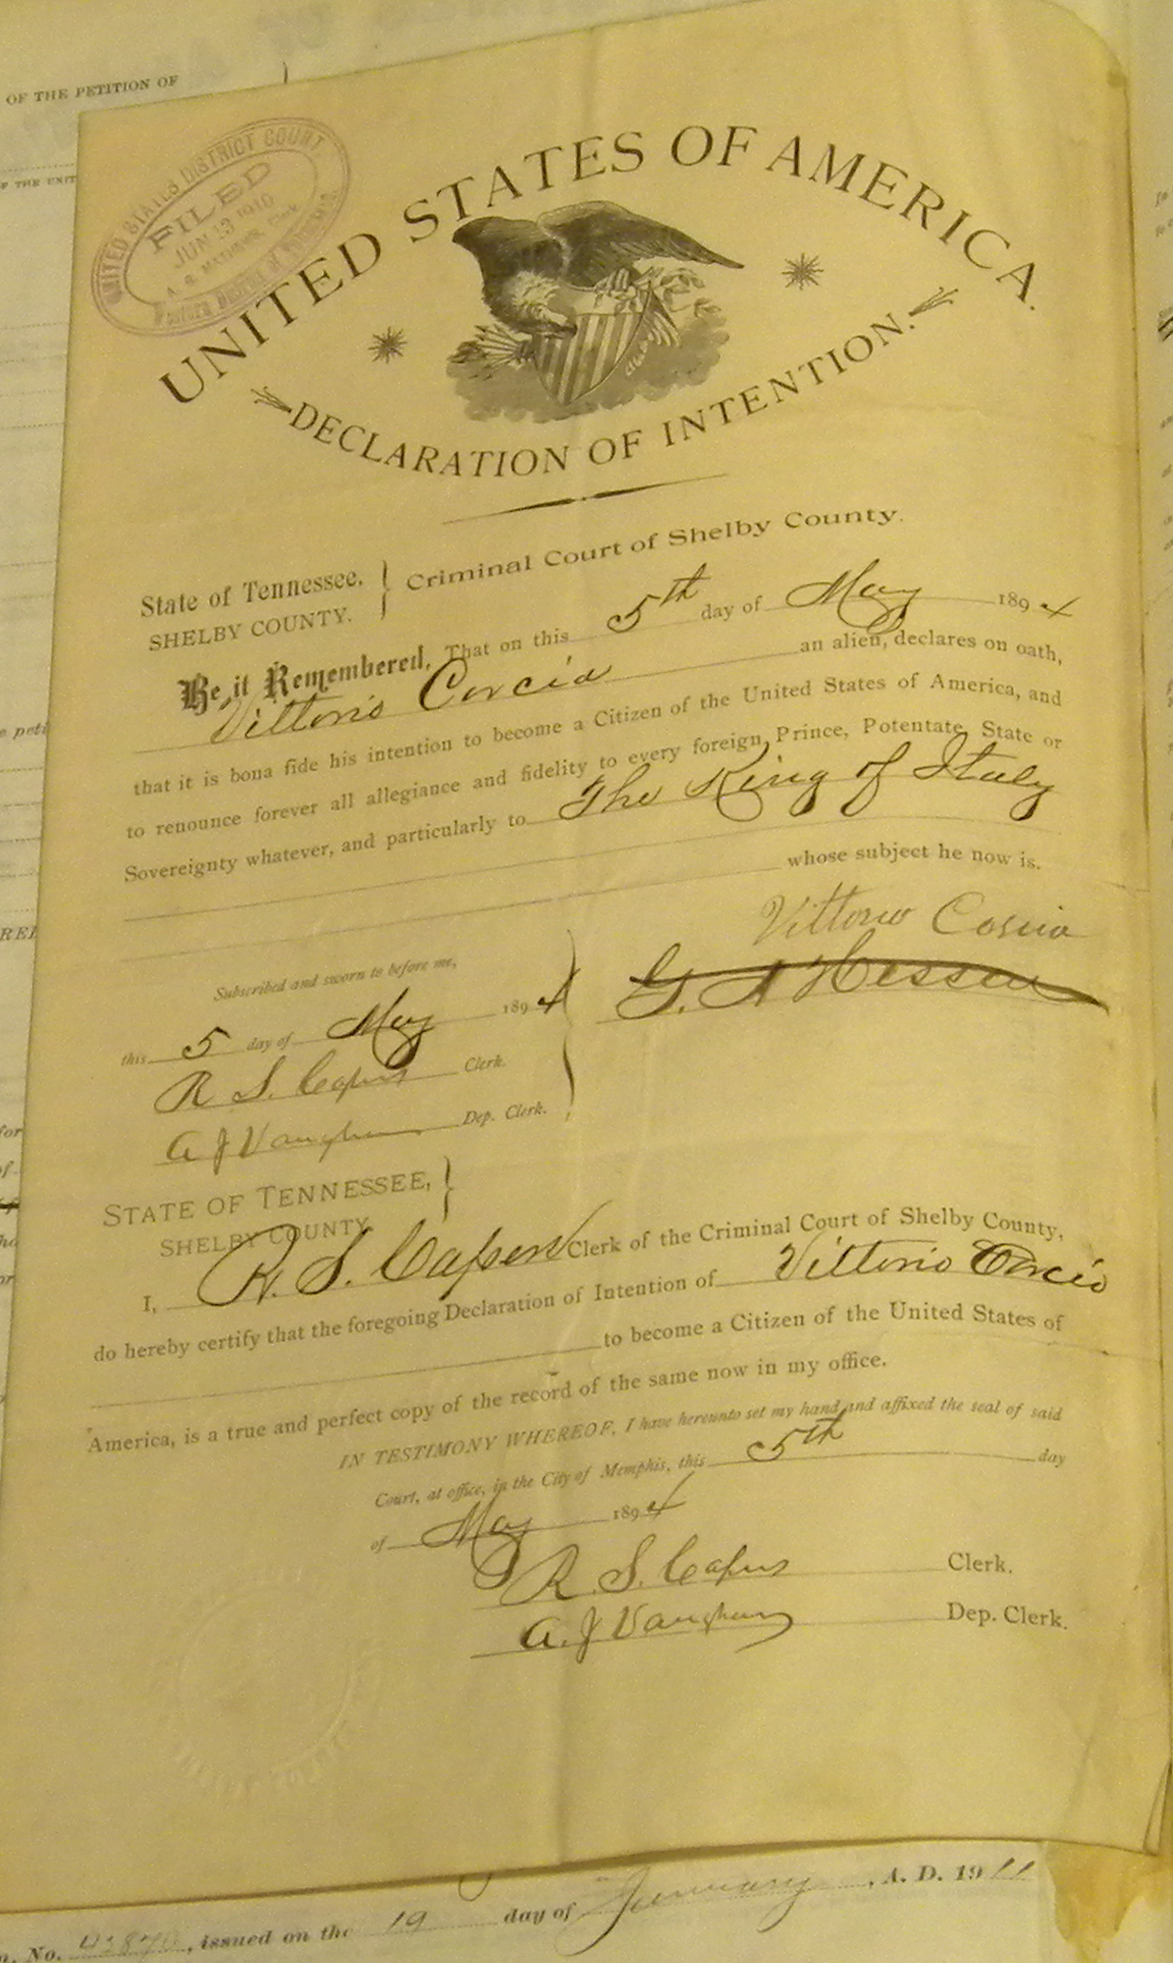 OF THE PETITION OF
UNITED STATES DISTRICT COURT
FILED
JUN 13 1910
Clerk
District of
UNITED STATES OF AMERICA.
DECLARATION OF INTENTION.
State of Tennessee,
SHELBY COUNTY.
Criminal Court of Shelby County.
Be it Remembered, That on this 5th day of May 1894
Vittorio Corcia an alien, declares on oath,
that it is bona fide his intention to become a Citizen of the United States of America, and
to renounce forever all allegiance and fidelity to every foreign Prince, Potentate, State or
Sovereignty whatever, and particularly to The King of Italy
whose subject he now is.
Vittorio Coscia
Subscribed and sworn to before me,
this 5 day of May 1894
R. S. Capers Clerk.
A J Vaughan Dep. Clerk.
STATE OF TENNESSEE,
SHELBY COUNTY
I, R. S. Capers Clerk of the Criminal Court of Shelby County,
do hereby certify that the foregoing Declaration of Intention of Vittorio Corcio
to become a Citizen of the United States of
America, is a true and perfect copy of the record of the same now in my office.
IN TESTIMONY WHEREOF, I have hereunto set my hand and affixed the seal of said
Court, at office, in the City of Memphis, this 5th day
of May 1894
R. S. Capers Clerk.
A. J Vaughan Dep. Clerk.
No. issued on the 19 day of January, A. D. 1911